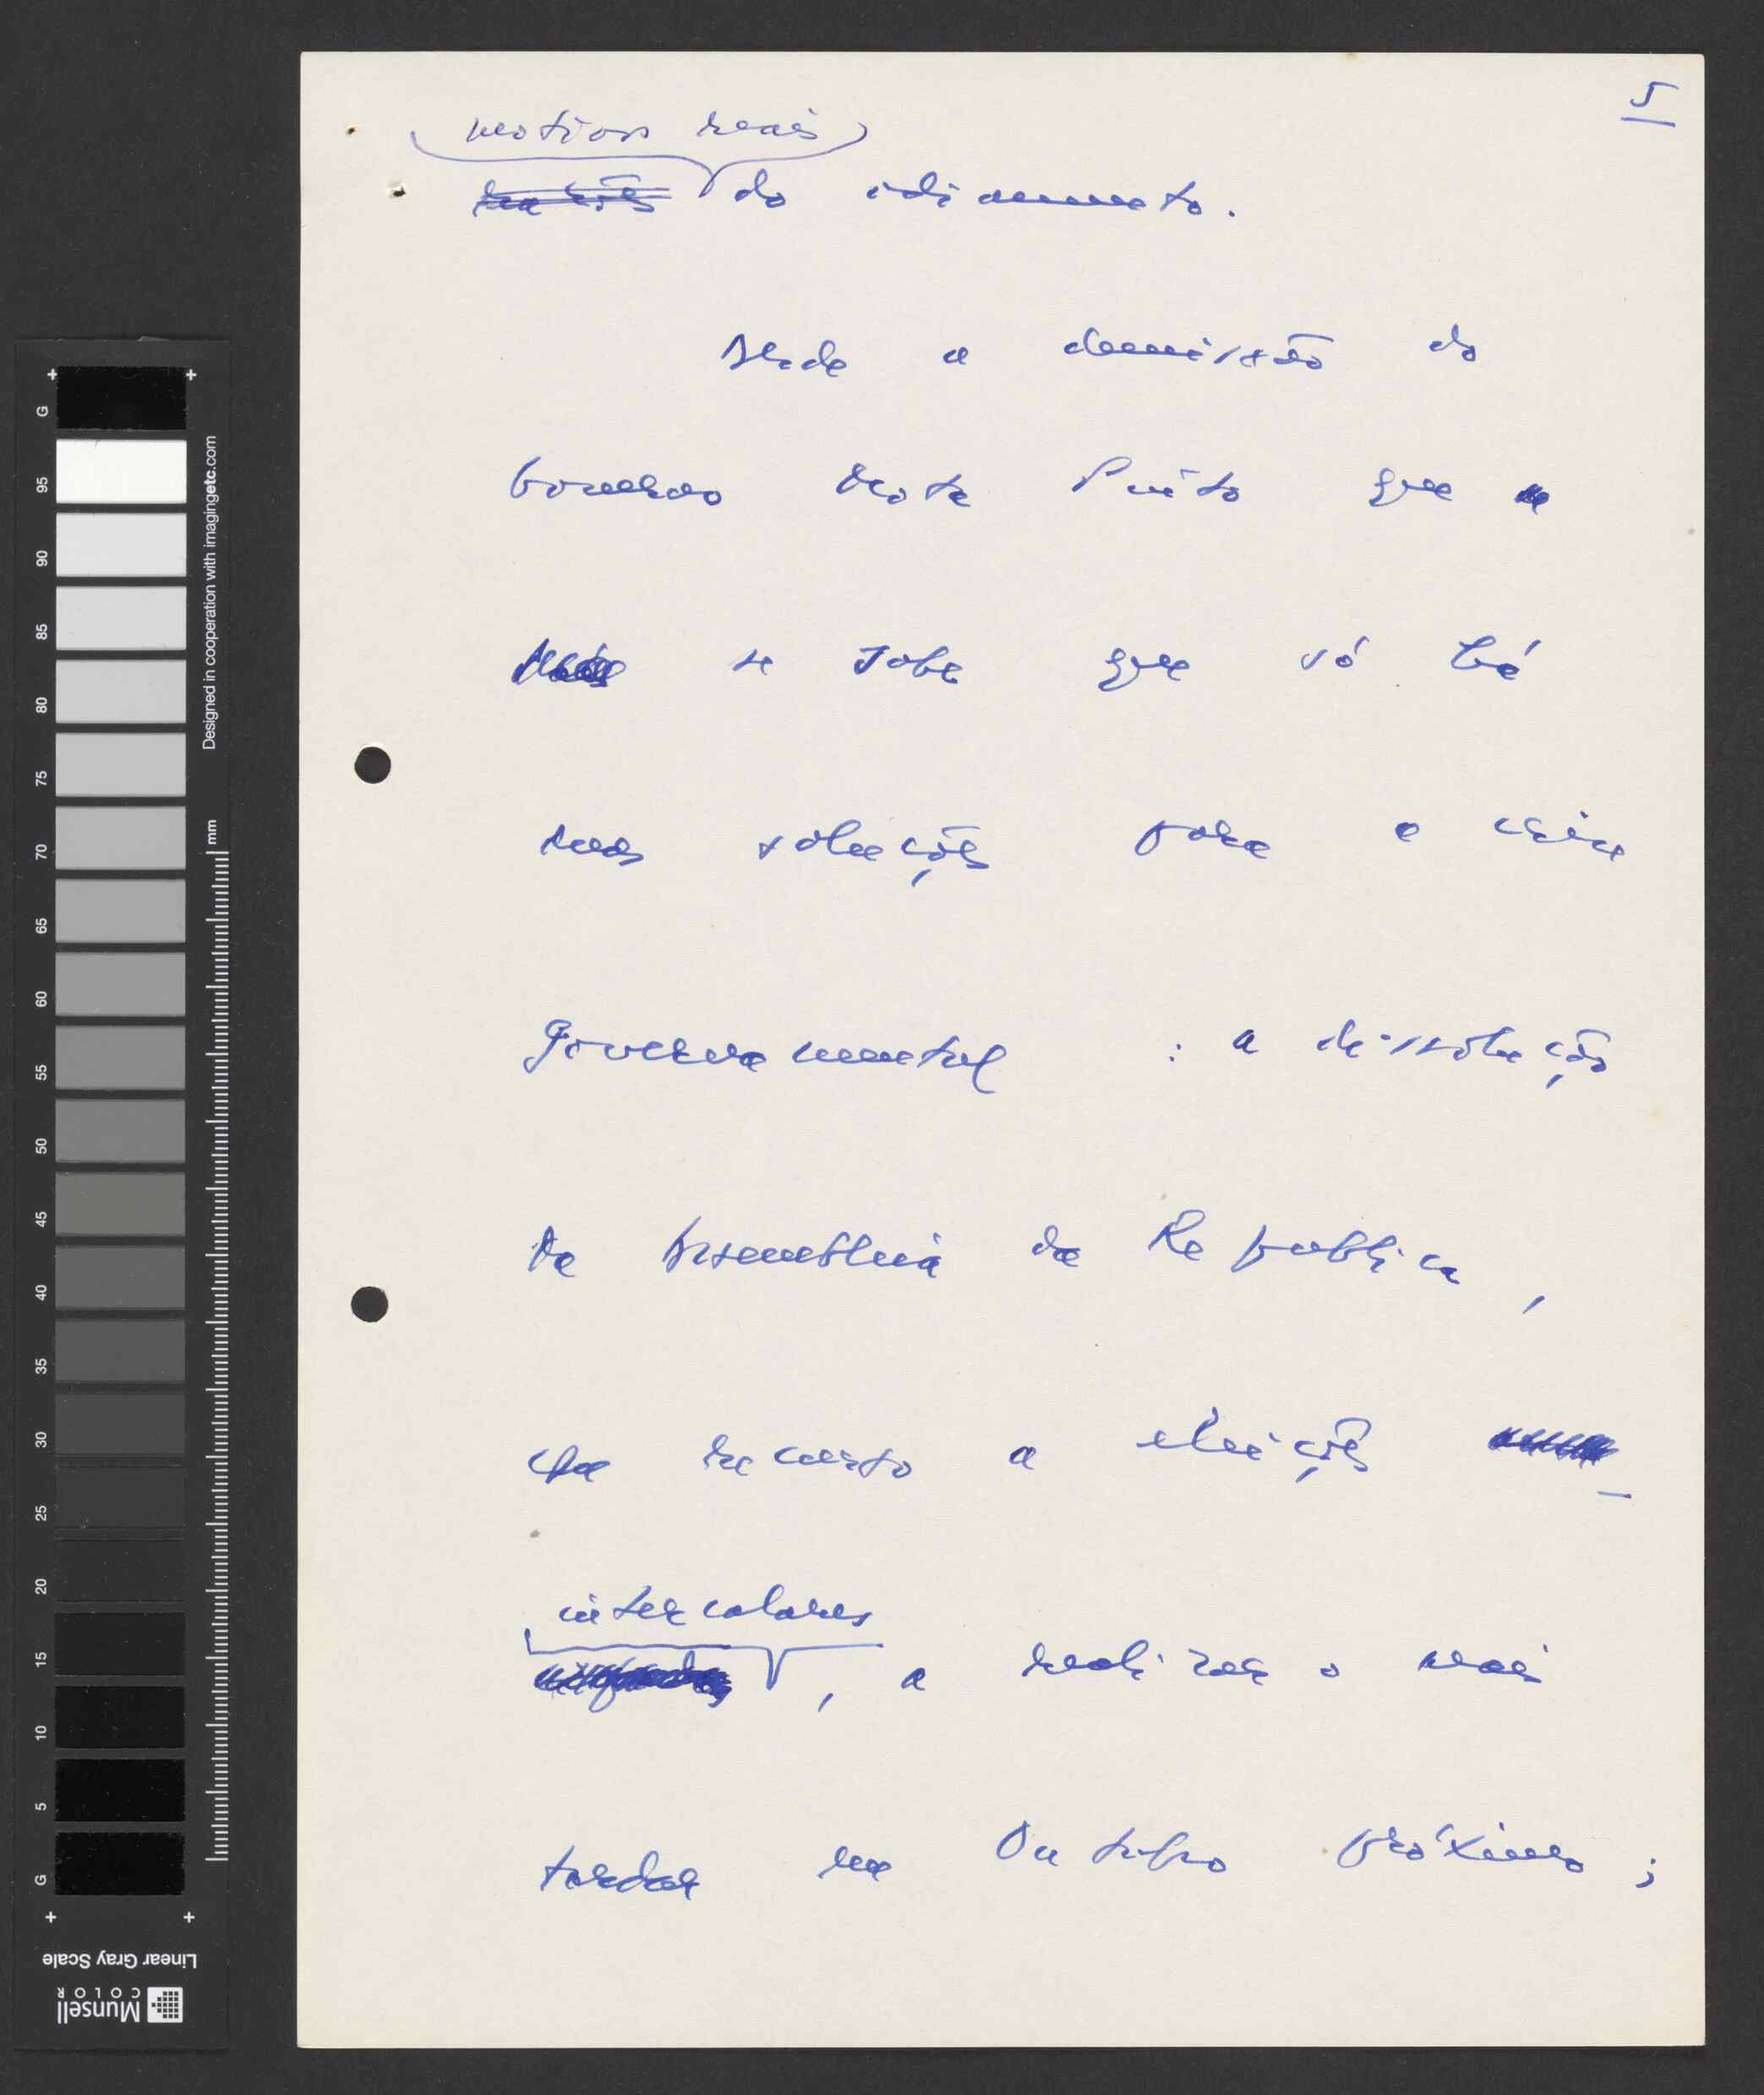 5
motivos reais
razões do adiamento.
Desde a demissão do
Governo Mota Pinto que
se sabe que só há
duas soluções para a crise
governamental : a dissolução
da Assembleia da Republica,
com recurso a eleições
intercalares
, a realizar o mais
tardar em Outubro próximo ;
G
95
90
85
80
75
70
65
60
55
50
45
40
35
30
25
20
15
10
5
G
Designed in cooperation with imagingetc.com
mm
Linear Gray Scale
Munsell
COLOR